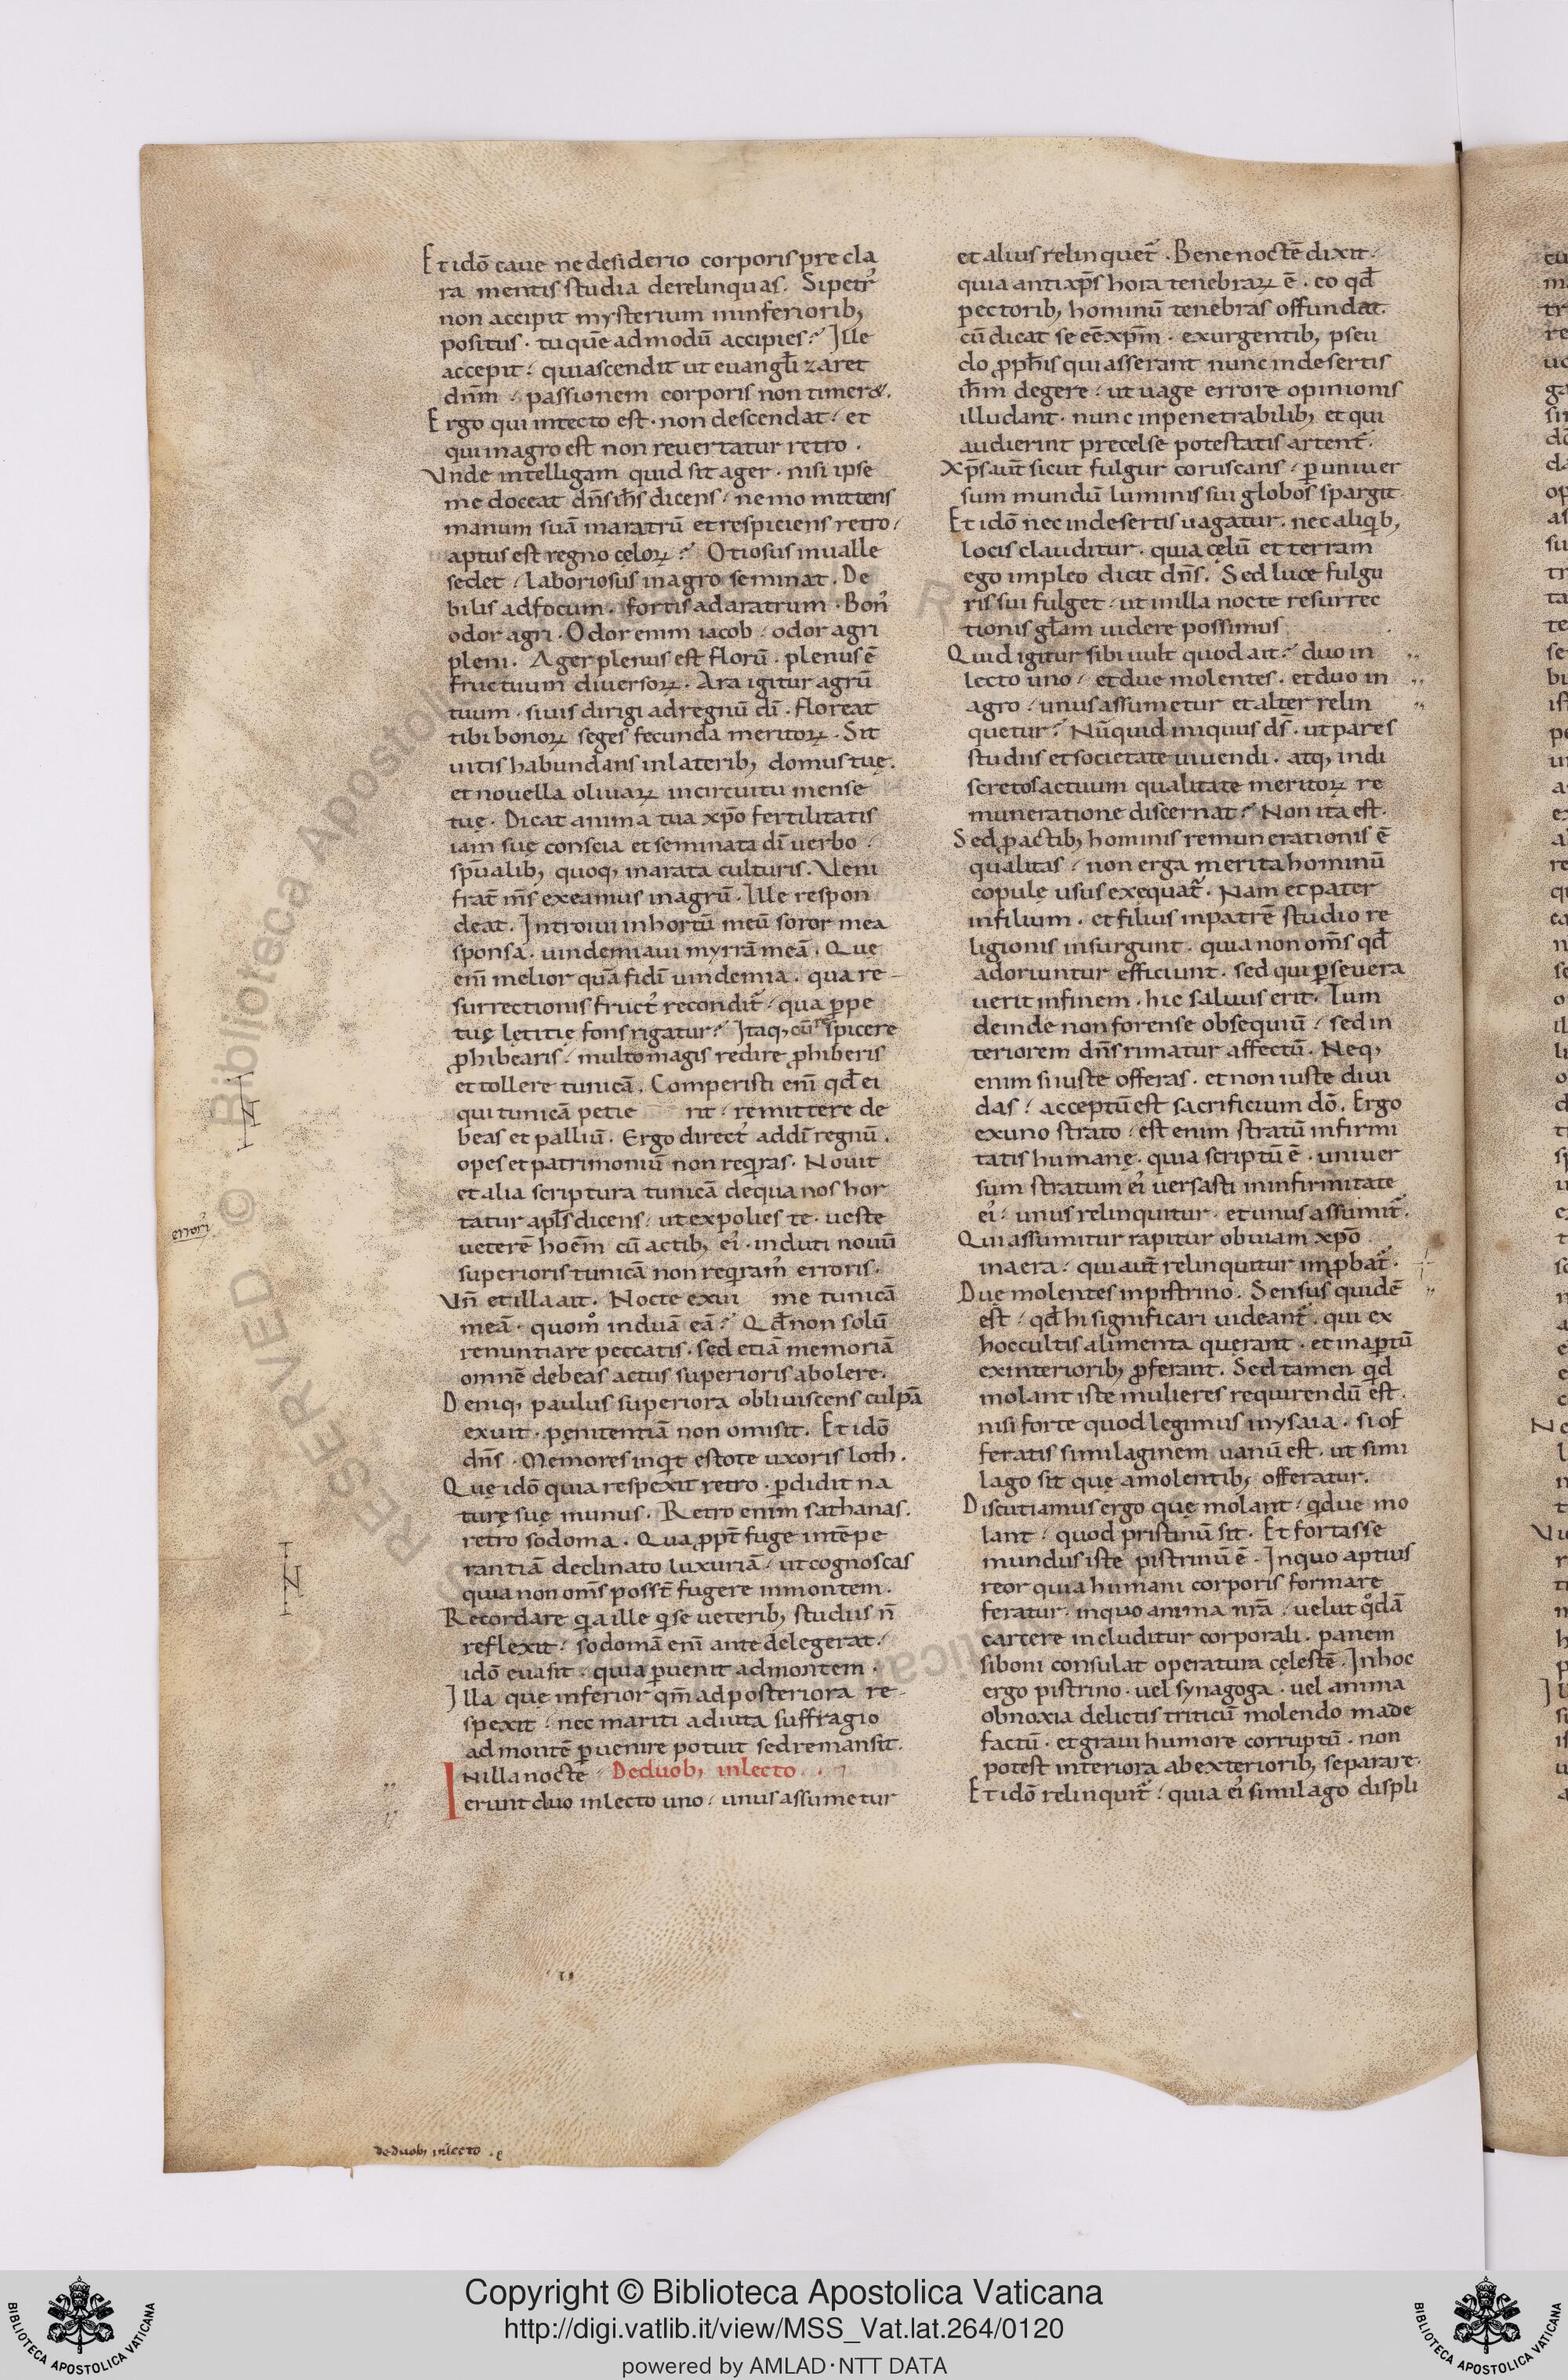 Et idō caue ne desiderio corporis precla
ra mentis studia derelinquas. Si petr᾿
non accipit mysterium ininferiorib;
positus · tu quē admodū accipies? Ille
accepit · qui ascendit ut euangl̄izaret
dn̄m · passionem corporis non timer&.
Ergo qui intecto est · non descendat · et
qui inagro est non reuertatur retro ·
Vnde intelligam quid sit ager · nisi ipse
me doceat dn̄s ih̄s dicens · nemo mittens
manum suā inaratrū et respiciens retro ·
aptus est regno celoꝝ? Otiosus inualle
sedet · laboriosus inagro seminat. De
bilis adfocum · fortis adaratrum · Bon᾿
odor agri · Odor enim iacob · odor agri
pleni. Ager plenus est florū · plenus ē
fructuum diuersoꝝ. Ara igitur agrū
tuum · si uis dirigi adregnū dī · floreat
tibi bonoꝝ seges fecunda meritoꝝ. Sit
uitis habundans inlaterib; domus tuę.
et nouella oliuaꝝ incircuitu mense
tuę. Dicat anima tua xp̄o fertilitatis
iam suę conscia et seminata dī uerbo ·
sp̄ualib; quoq; inarata culturis. Veni
frat̄ m̄s exeamus inagrū. Ille respon
deat. Introiui inhortū meū soror mea
sponsa. uindemiaui myrrā meā. Quę
em̄ melior quā fidī uindemia · qua re-
surrectionis fruct᾿ recondit̄ · qua ꝑpe
tuę lętitię fons rigatur? Itaq; cū respicere
ꝓhibearis · multo magis redire ꝓhiberis
et tollere tunicā. Comperisti em̄ qd̄ ei
qui tunicā petie rit · remittere de
beas et palliū. Ergo direct᾿ addī regnū.
opes et patrimoniū non reqiras. Nouit
et alia scriptura tunicā de qua nos hor
tatur apl̄s dicens · ut expolies te · ueste
ueterē hoēm cū actib; ei᾿ · induti nouū
superioris tunicā non reqiram᾿ erroris.
Vn̄ et illa ait. Nocte exui me tunicā
meā · quomo induā eā? Qd̄ non solū
renuntiare peccatis · sed etiā memoriā
omnē debeas actus superioris abolere.
Deniq; paulus superiora obliuiscens culpā
exuit · pęnitentiā non omisit. Et idō
dn̄s · Memores inqit estote uxoris loth.
Quę idō quia respexit retro · ꝑdidit na
turę suę munus. Retro enim sathanas.
retro sodoma. Qua ꝓpt̄ fuge intēpe
rantiā declinato luxuriā · ut cognoscas
quia non om̄s posst̄ fugere inmontem.
Recordare qia ille qi se ueterib; studiis n̄
reflexit · sodomā em̄ ante delegerat ·
idō euasit · quia ꝑuenit admontem ·
Illa quę inferior qm̄ adposteriora re-
spexit · nec mariti adiuta suffragio
ad montē ꝑuenire potuit sed remansit.
In illa nocte · De duob; in lecto
erunt duo inlecto uno · unus assumetur
et alius relinquet̄. Bene noctē dixit ·
quia antixp̄s hora tenebraꝝ ē · eo qd̄
pectorib; hominū tenebras offundat.
cū dicat se eē xp̄m · exurgentib; pseu
do ꝓph̄is qui asserant nunc indesertis
ih̄m degere · ut uage errore opinionis
illudant · nunc inpenetrabilib; et qui
audierint precelse potestatis artent̄.
Xp̄s aut̄ sicut fulgur coruscans · ꝑ uniuer
sum mundū luminis sui globos spargit
Et idō nec indesertis uagatur · nec aliqib;
locis clauditur · quia cęlū et terram
ego impleo dicit dn̄s. Sed luce fulgu
ris sui fulget · ut inilla nocte resurrec
tionis gl̄am uidere possimus
Quid igitur sibi uult quod ait? duo in
lecto uno · et due molentes · et duo in
agro · unus assumetur et alter relin
quetur? Nūquid iniquus ds̄ · ut pares
studiis et societate uiuendi · atq; indi
scretos actuum qualitate meritoꝝ re
muneratione discernat? Non ita est.
Sed ꝓ actib; hominis remunerationis ē
qualitas · non erga merita hominū
copulę usus exequat̄. Nam et pater
infilium · et filius inpatrē studio re
ligionis insurgunt · quia non om̄s qd̄
adoriuntur efficiunt · sed qui ꝑseuera
uerit infinem · hic saluus erit. Tum
deinde non forense obsequiū · sed in
teriorem dn̄s rimatur affectū. Neq;
enim si iuste offeras · et non iuste diui
das · acceptū est sacrificium dō. Ergo
ex uno strato · est enim stratū infirmi
tatis humanę · quia scriptū ē · uniuer
sum stratum ei᾿ uersasti ininfirmitate
ei᾿ · unus relinquitur · et unus assumit̄.
Qui assumitur rapitur obuiam xp̄o
inaera · qui aut̄ relinquitur inꝓbat̄.
Duę molentes inpistrino. Sensus quidē
est · qd̄ hi significari uideant̄ · qui ex
hoccultis alimenta querant · et inaꝑtū
exinteriorib; ꝓferant. Sed tamen qid
molant iste mulieres requirendū est.
nisi forte quod legimus inysaia · si of
feratis similaginem uanū est · ut simi
lago sit quę amolentib; offeratur.
Discutiamus ergo quę molant · qi due mo
lant · quod pristinū sit. Et fortasse
mundus iste pistrinū ē. Inquo aptius
reor quia humani corporis formare
feratur · inquo anima nr̄a · uelut qodā
carcere includitur corporali · panem
sibom consulat operatura cęlestē. Inhoc
ergo pistrino · uel synagoga · uel anima
obnoxia delictis triticū molendo made
factū · et graui humore corruptū · non
potest interiora abexteriorib; separare.
Et idō relinquit̄ · quia ei᾿ similago displi
de duob; inlecto
Copyright © Biblioteca Apostolica Vaticana
http://digi.vatlib.it/view/MSS_Vat.lat.264/0120
powered by AMLAD·NTT DATA
BIBLIOTECA APOSTOLICA VATICANA
BIBLIOTECA APOSTOLICA VATICANA